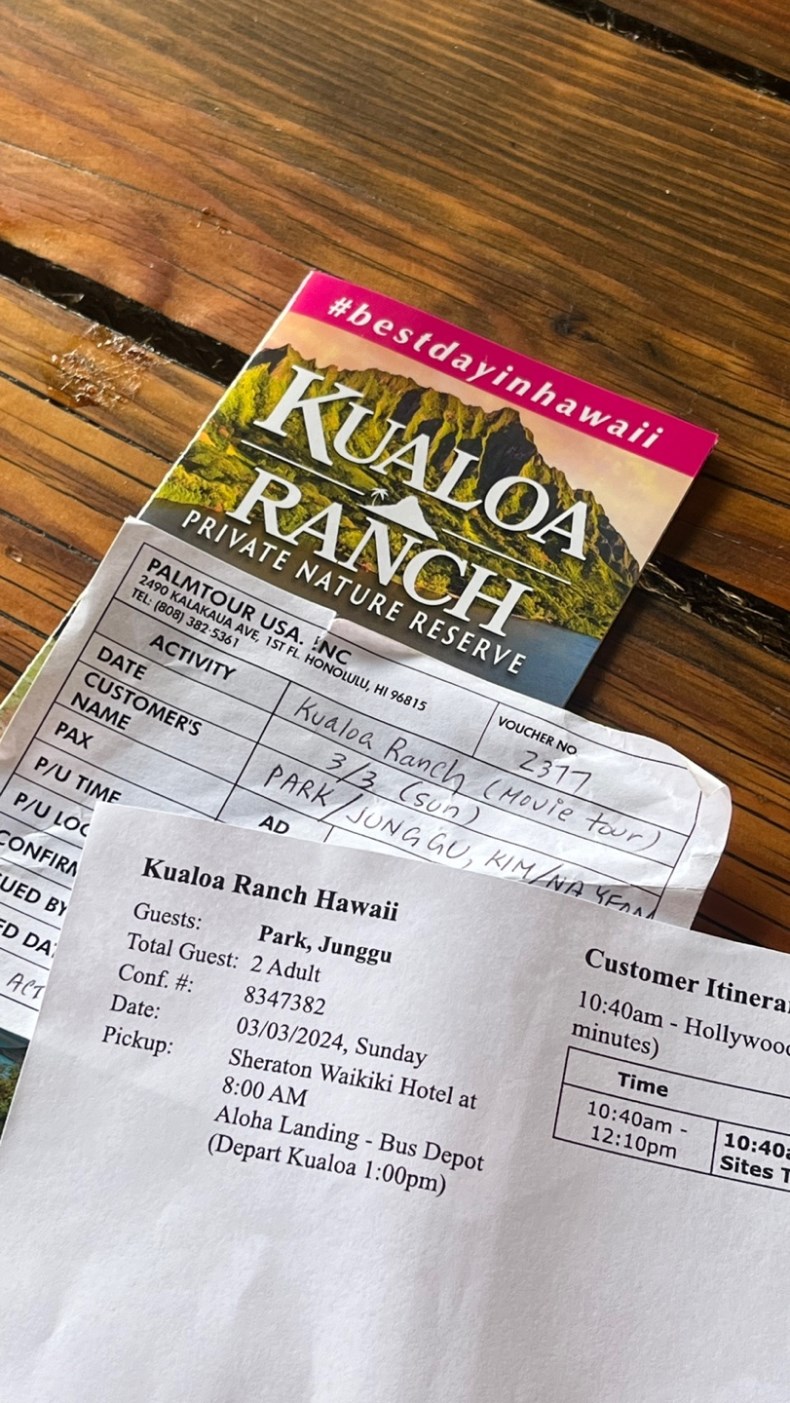 #bestdayinhawaii
KUALOA
RANCH
PRIVATE NATURE RESERVE
PALMTOUR USA. INC
2490 KALAKAUA AVE, 1ST FL. HONOLULU, HI 96815
TEL: (808) 382-5361
VOUCHER NO
2377
ACTIVITY
Kualoa Ranch (Movie tour)
DATE
3/3 (sun)
CUSTOMER'S
NAME
PARK/JUNGGU, KIM/NA YEON
PAX
AD
P/U TIME
P/U LOC
CONFIRM
UED BY
ED DA
ACT
Kualoa Ranch Hawaii
Guests: Park, Junggu
Total Guest: 2 Adult
Conf. #: 8347382
Date: 03/03/2024, Sunday
Pickup: Sheraton Waikiki Hotel at
8:00 AM
Aloha Landing - Bus Depot
(Depart Kualoa 1:00pm)
Customer Itinera
10:40am - Hollywood
minutes)
Time
10:40am -
12:10pm
10:40a
Sites T